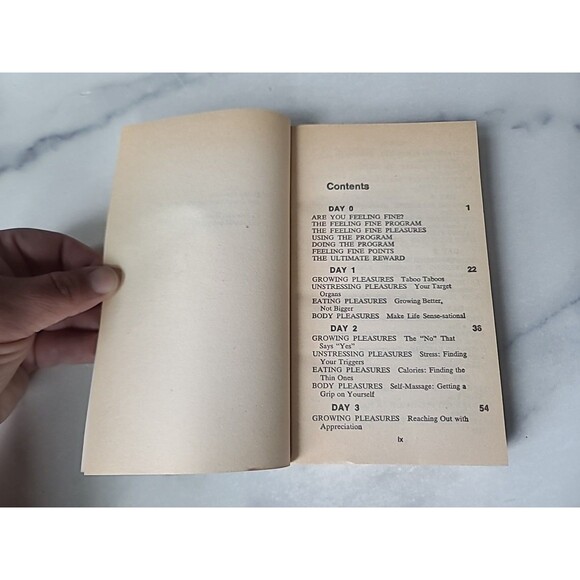 Contents
DAY 0 1
ARE YOU FEELING FINE?
THE FEELING FINE PROGRAM
THE FEELING FINE PLEASURES
USING THE PROGRAM
DOING THE PROGRAM
FEELING FINE POINTS
THE ULTIMATE REWARD
DAY 1 22
GROWING PLEASURES Taboo Taboos
UNSTRESSING PLEASURES Your Target
Organs
EATING PLEASURES Growing Better,
Not Bigger
BODY PLEASURES Make Life Sense-sational
DAY 2 36
GROWING PLEASURES The "No" That
Says "Yes"
UNSTRESSING PLEASURES Stress: Finding
Your Triggers
EATING PLEASURES Calories: Finding the
Thin Ones
BODY PLEASURES Self-Massage: Getting a
Grip on Yourself
DAY 3 54
GROWING PLEASURES Reaching Out with
Appreciation
ix